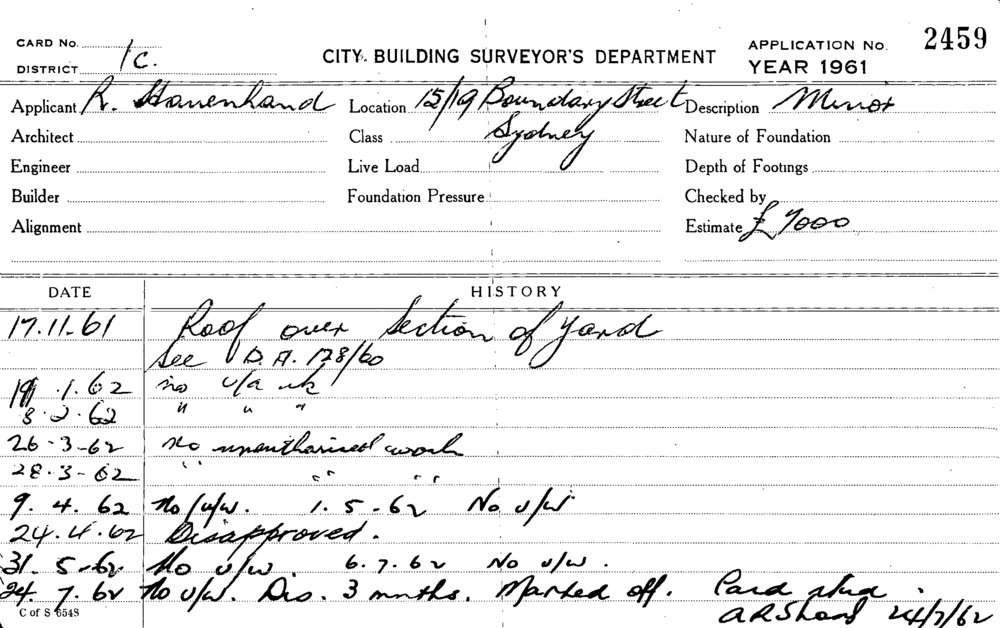 CARD No.
DISTRICT 1C.
CITY BUILDING SURVEYOR'S DEPARTMENT
APPLICATION No. 2459
YEAR 1961
Applicant R. Location 15/19 Boundary Street Description Minor
Architect Class Sydney Nature of Foundation
Engineer Live Load Depth of Footings
Builder Foundation Pressure Checked by
Alignment Estimate £7000
DATE HISTORY
17.11.61 Roof over Section of Yard
See D.A. 128/60
19.1.62 no u/a wk
8.2.62 " " "
26-3-62 No unauthorised work
28.3-62 " " "
9.4.62 No/u/w. 1.5-62 No u/w
24.4.62 Disapproved.
31.5-62 No u/w. 6.7.62 No u/w.
24.7.62 No u/w. Dis. 3 mnths. Marked off. Card
24/7/62
C of S 6548